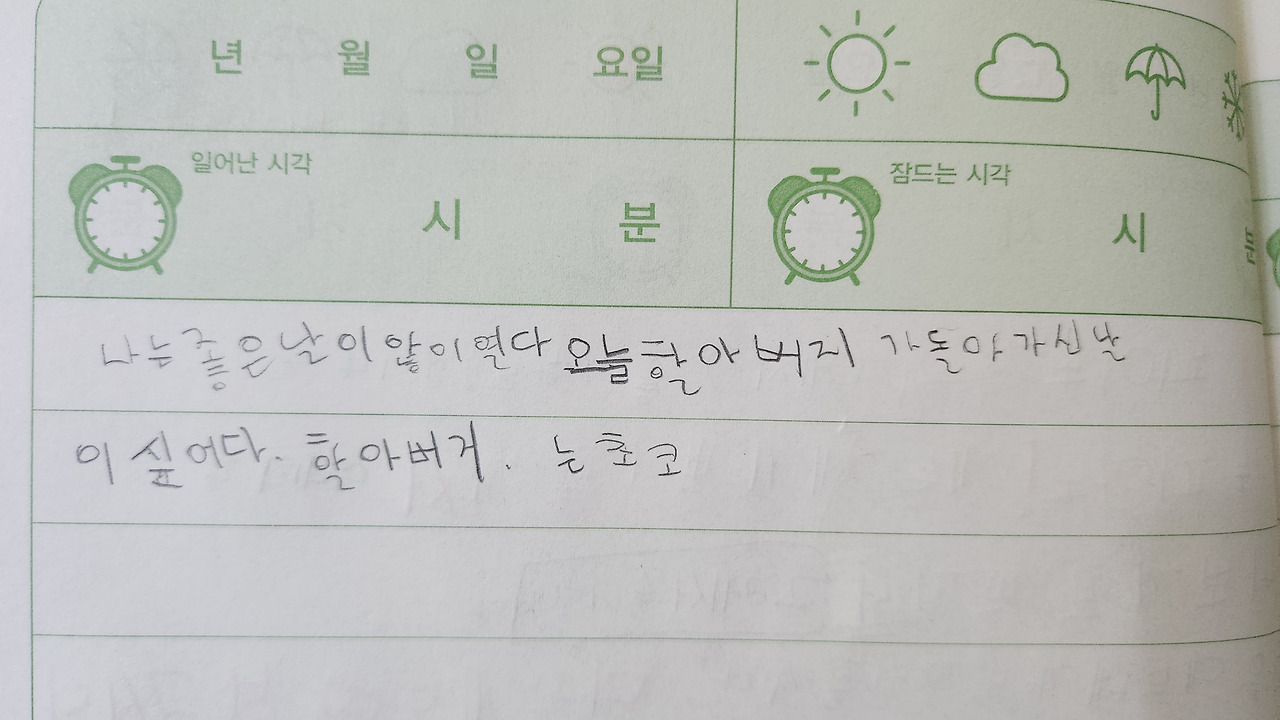 년 월 일 요일
일어난 시각 시 분
잠드는 시각 시 분
나는좋은날이않이연다오늘할아버지 가돌아가신날
이싶어다. 할아버거. 는초코